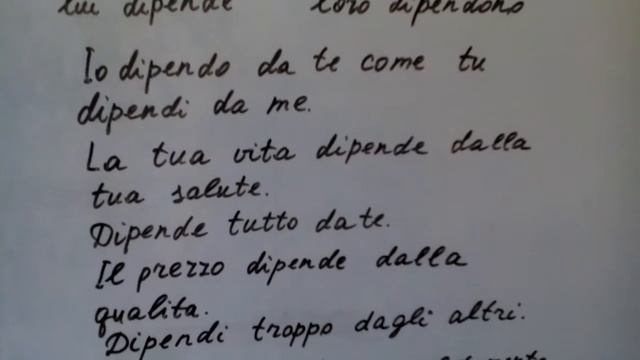 lui dipende loro dipendono
Io dipendo da te come tu
dipendi da me.
La tua vita dipende dalla
tua salute.
Dipende tutto da te.
Il prezzo dipende dalla
qualita.
Dipendi troppo dagli altri.